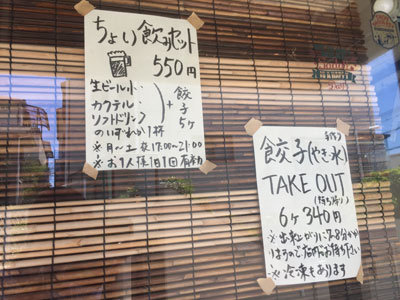 ちょい飲みセット
550円
生ビール小
カクテル
ソフトドリンク
のいずれか1杯
+ 餃子5ケ
※月〜土 夜17:00〜21:00
※お1人様1日1回有効
餃子(やき・水)
TAKE OUT
(持ち帰り)
6ケ 340円
※出来上がりに7~8分かか
りますので店内でお待ち下さい
※冷凍もあります